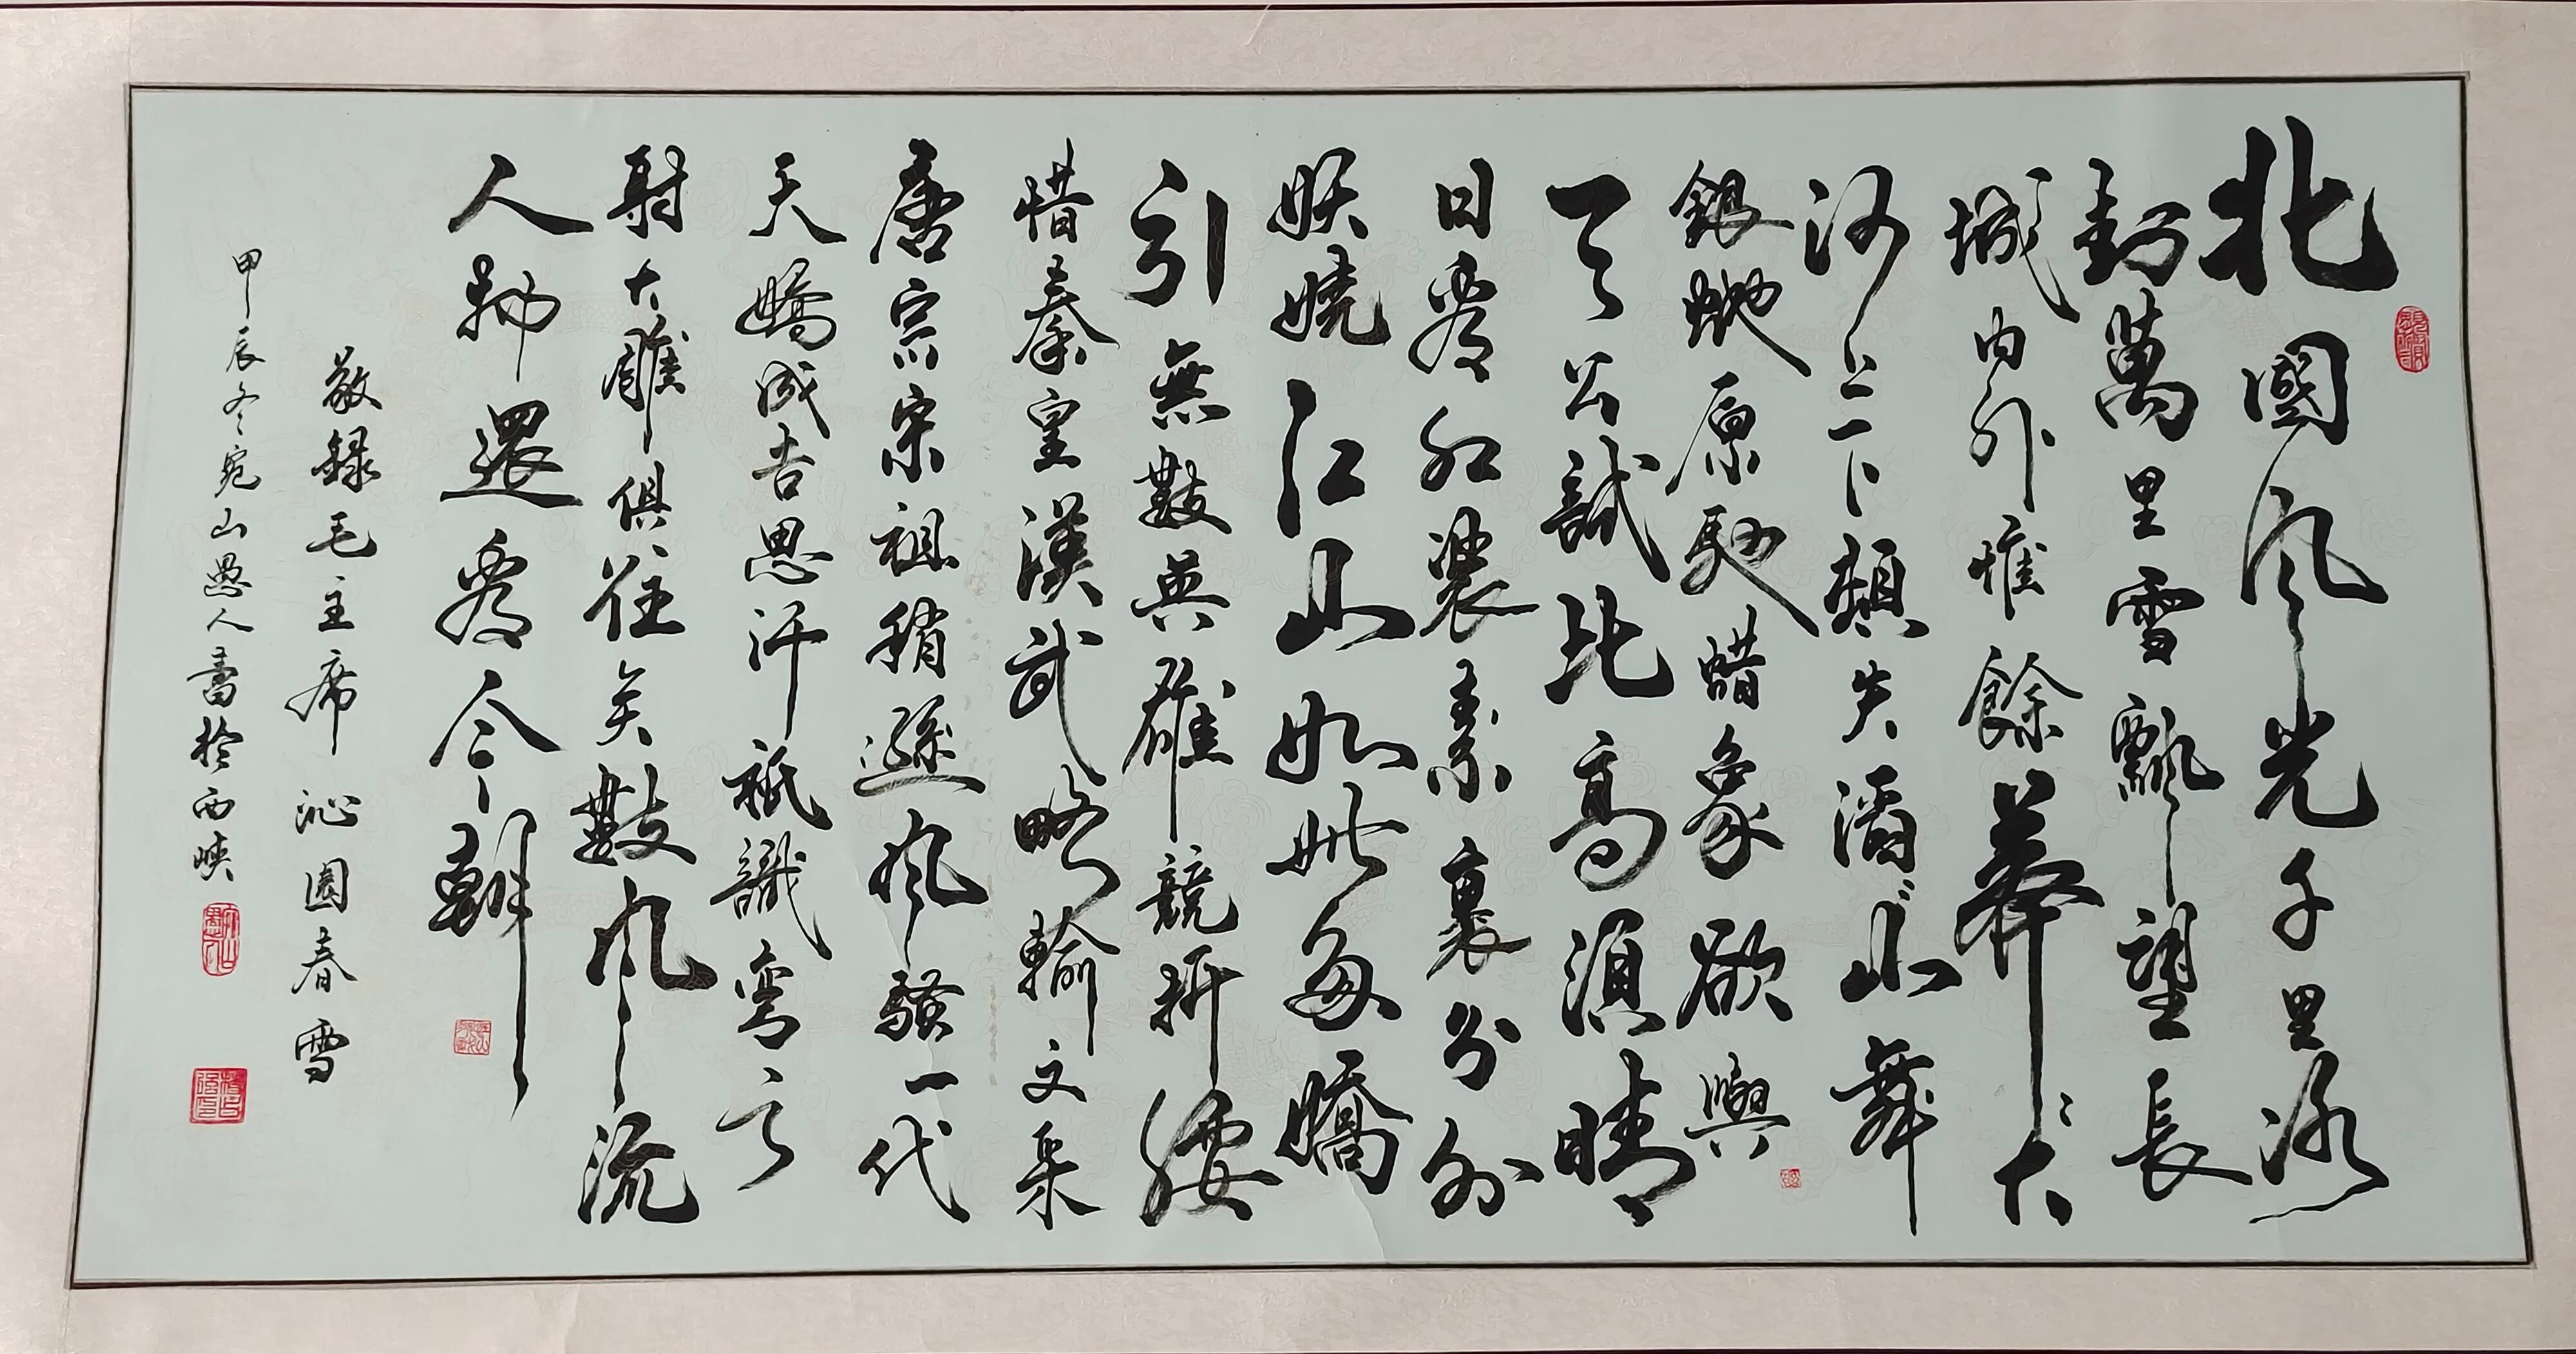 北國风光千里冰
封萬里雪飄望長
城内外惟餘莽〻大
河上下頓失滔〻山舞
銀蛇原馳蜡象欲與
天公試比高須晴
日看红裝素裹分外
妖嬈江山如此多嬌
引無數英雄競折腰
惜秦皇漢武略輸文采
唐宗宋祖稍遜风騷一代
天嬌成吉思汗祇識彎弓
射大雕俱往矣數风流
人物還看今朝
敬録毛主席沁園春雪
甲辰冬宛山愚人書於西峡
宛山愚人